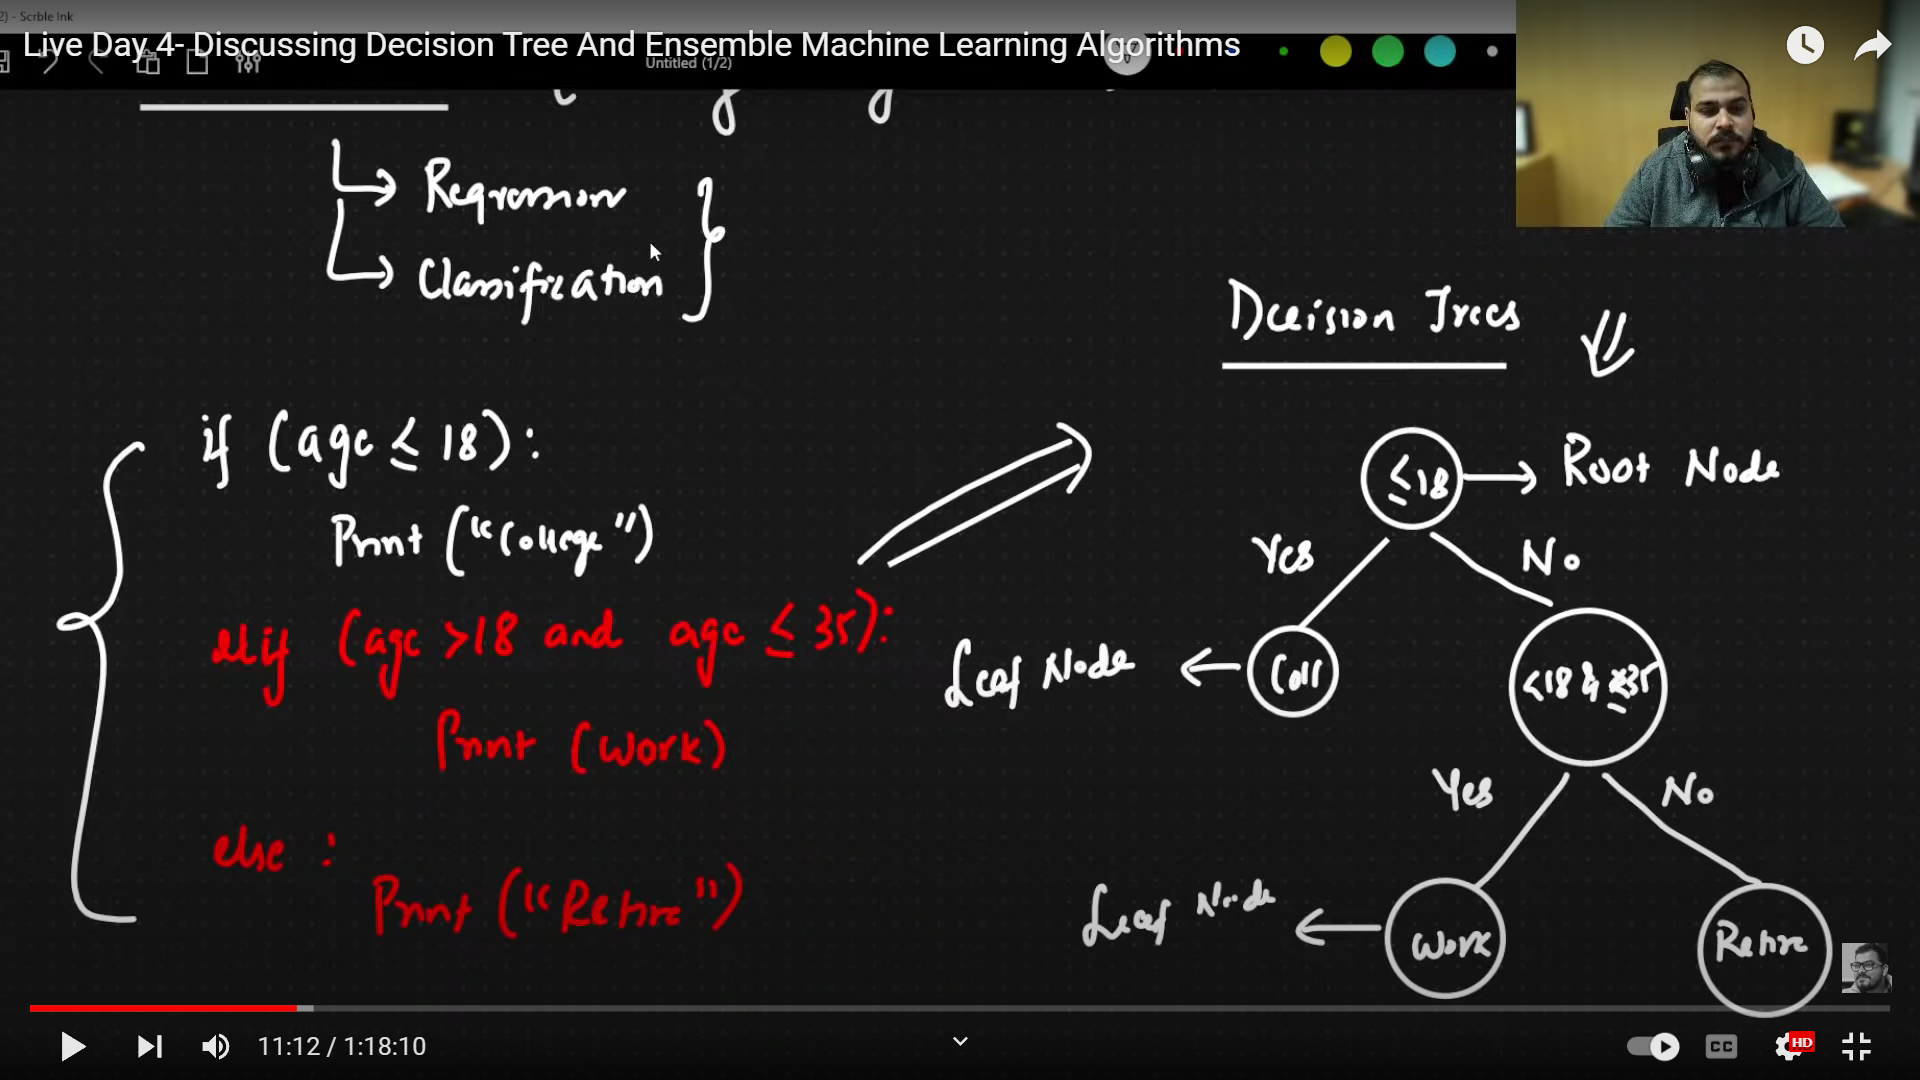 2) - Scrble Ink
Live Day 4- Discussing Decision Tree And Ensemble Machine Learning Algorithms
Untitled (1/2)
Regression
Classification
Decision Trees
if (age ≤ 18):
Print ("College")
elif (age >18 and age ≤ 35):
Print (Work)
else :
Print ("Retire")
≤18 → Root Node
Yes No
Leaf Node ← Coll
<18 & ≤35
Yes No
Leaf Node ← Work
Retire
11:12 / 1:18:10
CC
HD